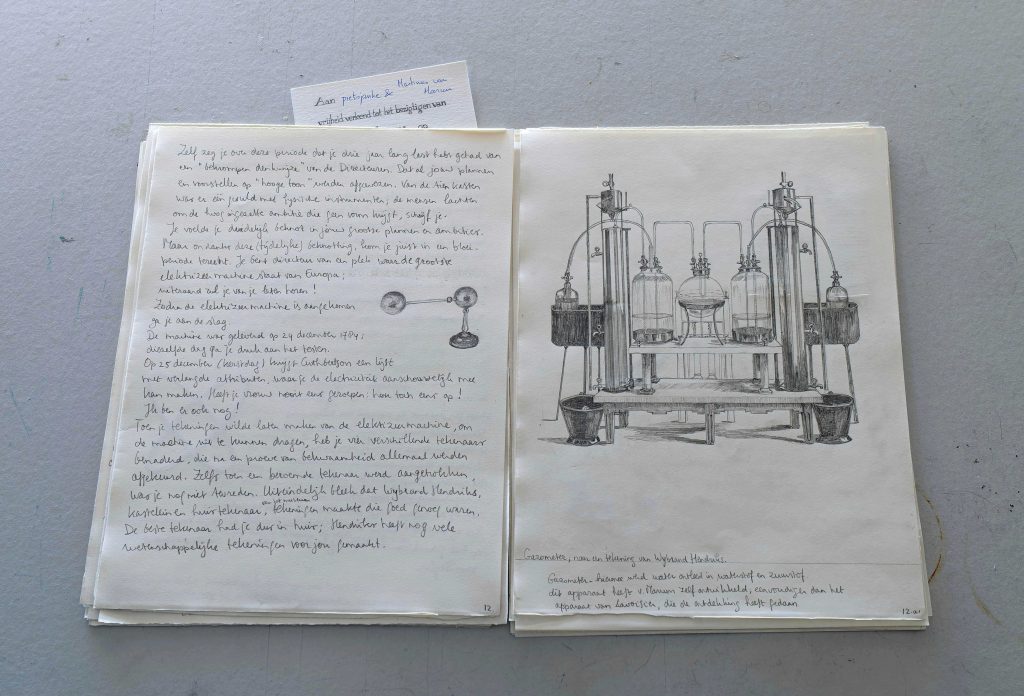 Aan pietsjanke &
Martinus van
Marum
vrijheid verkend tot het bezigtigen van
Zelf zeg je over deze periode dat je drie jaar lang last hebt gehad van
een "bekrompen denkwijze" van de Directeuren. Dat al jouw plannen
en voorstellen op "hooge toon" werden afgewezen. Van de tien kasten
was er één gevuld met fysische instrumenten; de mensen lachten
om de hoog ingezette ambitie die geen vorm krijgt, schrijf je.
Je voelde je dadelijk beknot in jouw grootse plannen en ambities.
Maar ondanks deze (tijdelijke) beknotting, kom je juist in een bloei-
periode terecht. Je bent directeur van een plek waar de grootste
elektrizeermachine staat van Europa;
uiteraard zul je van je laten horen!
Zodra de elektrizeermachine is aangekomen
ga je aan de slag.
De machine war geleverd op 24 december 1784;
diezelfde dag ga je druk aan het testen.
Op 25 december (kerstdag) krijgt Cuthbertson een lijst
met verlangde attributen, waar je de electriciteit aanschouwelijk mee
kan maken. Heeft je vrouw nooit eens geroepen: hou toch eens op!
Ik ben er ook nog!
Toen je tekeningen wilde laten maken van de elektrizeermachine, om
de machine uit te kunnen dragen, heb je vier verschillende tekenaars
benaderd, die na een proeve van bekwaamheid allemaal werden
afgekeurd. Zelfs toen een beroemde tekenaar werd aangetrokken,
was je nog niet tevreden. Uiteindelijk bleek dat Wybrand Hendriks,
kastelein en huistekenaar van het museum, tekeningen maakte die goed genoeg waren.
De beste tekenaar had je dus in huis; Hendriks heeft nog vele
wetenschappelijke tekeningen voor jou gemaakt.
12.
Gazometer, naar een tekening van Wybrand Hendriks.
Gazometer - hiermee werd water ontleed in waterstof en zuurstof.
dit apparaat heeft v. Marum zelf ontwikkeld, eenvoudiger dan het
apparaat van Lavoisier, die de ontdekking heeft gedaan
12.a